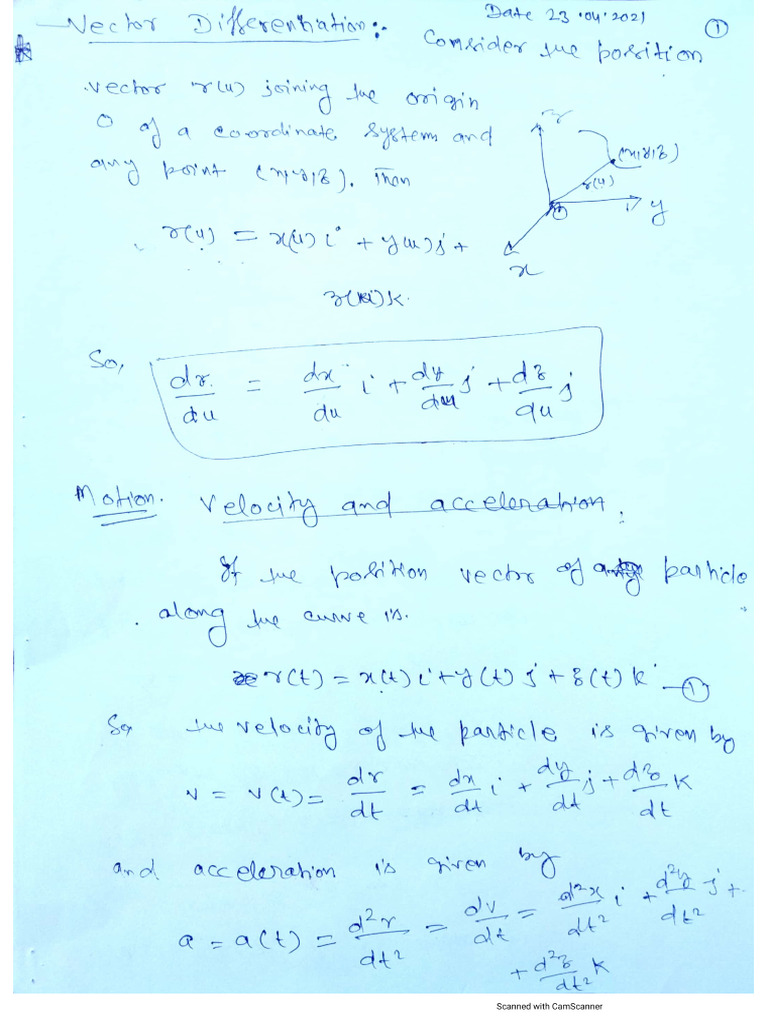 Vector Differentiation:- Date 23.04.2021 ①
Consider the position
vector r(u) joining the origin
O of a coordinate system and
any point (x,y,z). Then
z
(x,y,z)
r(u)
y
x
r(u) = x(u) i + y(u) j +
z(u) k.
So,
dr/du = dx/du i + dy/du j + dz/du j
Motion. Velocity and acceleration.
If the position vector of particle
along the curve is.
r(t) = x(t) i + y(t) j + z(t) k —①
So the velocity of the particle is given by
v = v(t) = dr/dt = dx/dt i + dy/dt j + dz/dt k
and acceleration is given by
a = a(t) = d²r/dt² = dv/dt = d²x/dt² i + d²y/dt² j +
+ d²z/dt² k
Scanned with CamScanner